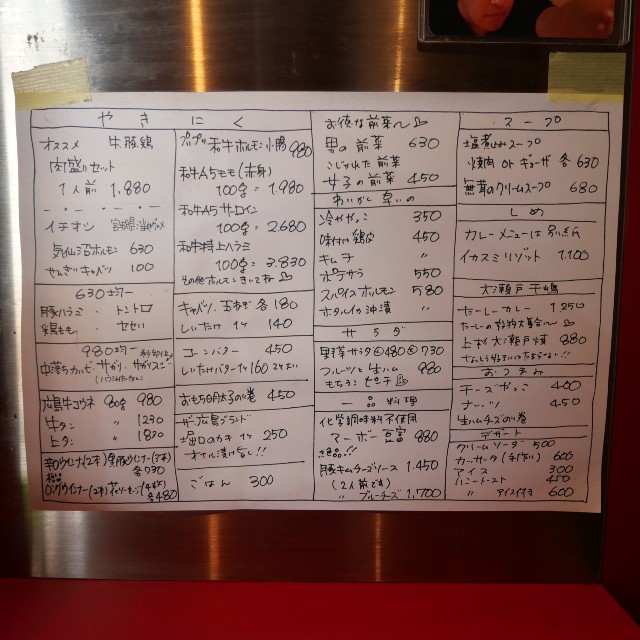 やきにく
オススメ 牛豚鶏
肉盛りセット
1人前 1,880
イチオシ
気仙沼ホルモン 630
せんぎりキャベツ 100
630
豚ハラミ ・ トントロ
鶏もも ・ セセリ
980
中落ちカルビ
広島牛コウネ 80g 980
牛タン 〃 1230
上タン 〃 1820
各730
各480
プリプリ和牛ホルモン小腸 980
和牛A5もも(赤身)
100g = 1,980
和牛A5サーロイン
100g = 2,680
和牛特上ハラミ
100g = 3,830
その他ホルモンきいてネ
キャベツ、玉ねぎ 各180
しいたけ 1ケ 140
コーンバター 450
しいたけバター 1ケ160 2ケより
おもち明太子の巻 450
ザ・広島ブランド
堀口のカキ 1ケ 250
オイル漬け旨し!!
ごはん 300
お得な前菜〜
男の前菜 630
こじゃれた前菜
女子の前菜 450
冷ややっこ 350
味付け鶏皮 450
キムチ 〃
ポテサラ 550
スパイスホルモン 580
ホタルイカ沖漬 〃
サラダ
野菜サラダ 小480 大730
フルーツと生ハム 980
もちろんピーチ
一品料理
化学調味料不使用
マーボー豆腐 880
絶品!!
豚キムチーズソース 1,450
(2人前です)
〃 ブルーチーズ 1,700
スープ
塩煮込みスープ
焼肉 or ギョーザ 各630
無菜のクリームスープ 680
しめ
カレーメニューは別紙
イカスミリゾット 1,100
大瀬戸干嶋
たーしーカレー 1250
880
おつまみ
チーズやっこ 400
ナッツ 450
生ハムチーズの巻
デザート
クリームソーダ 500
カッサータ(手作り) 600
アイス 300
ハニートースト 450
〃 アイス付き 600